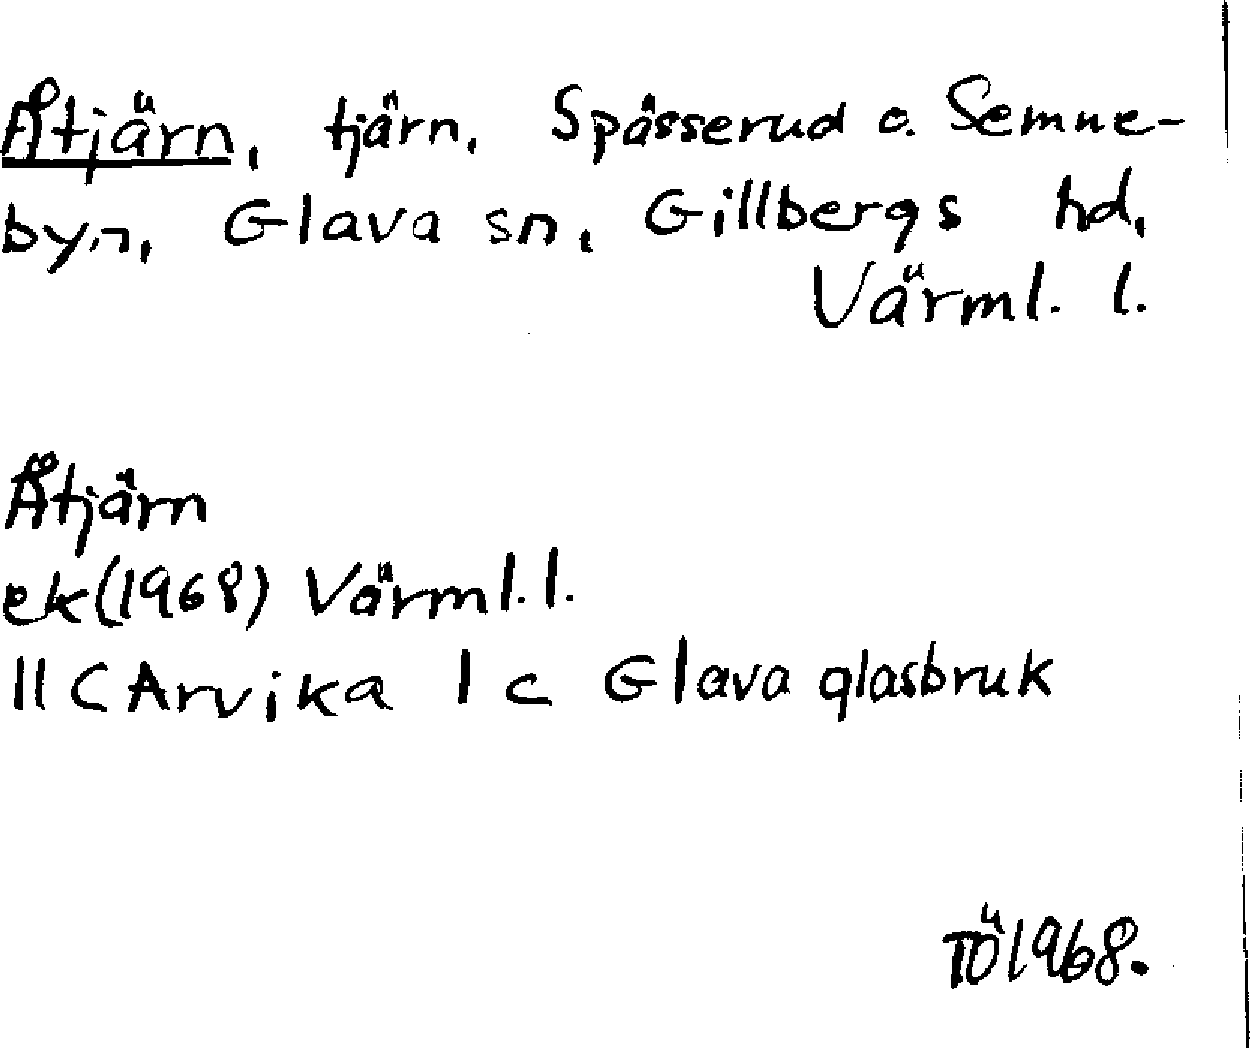 Åtjärn, tjärn, Spässerud o. Semne-
byn, Glava sn, Gillbergs hd,
Värml. l.
Åtjärn
ek (1968) Värml. l.
11 C Arvika 1 c Glava glasbruk
TÖ 1968.